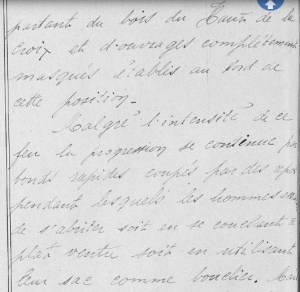 partant du bois du Haut de la
Croix et d'ouvrages complètement
masqués établis au Nord de
cette position.
Malgré l'intensité de ce
feu la progression se continue par
bonds rapides coupés par des
pendant lesquels les hommes
de s'abriter soit en se couchant à
plat ventre soit en utilisant
leur sac comme bouclier.